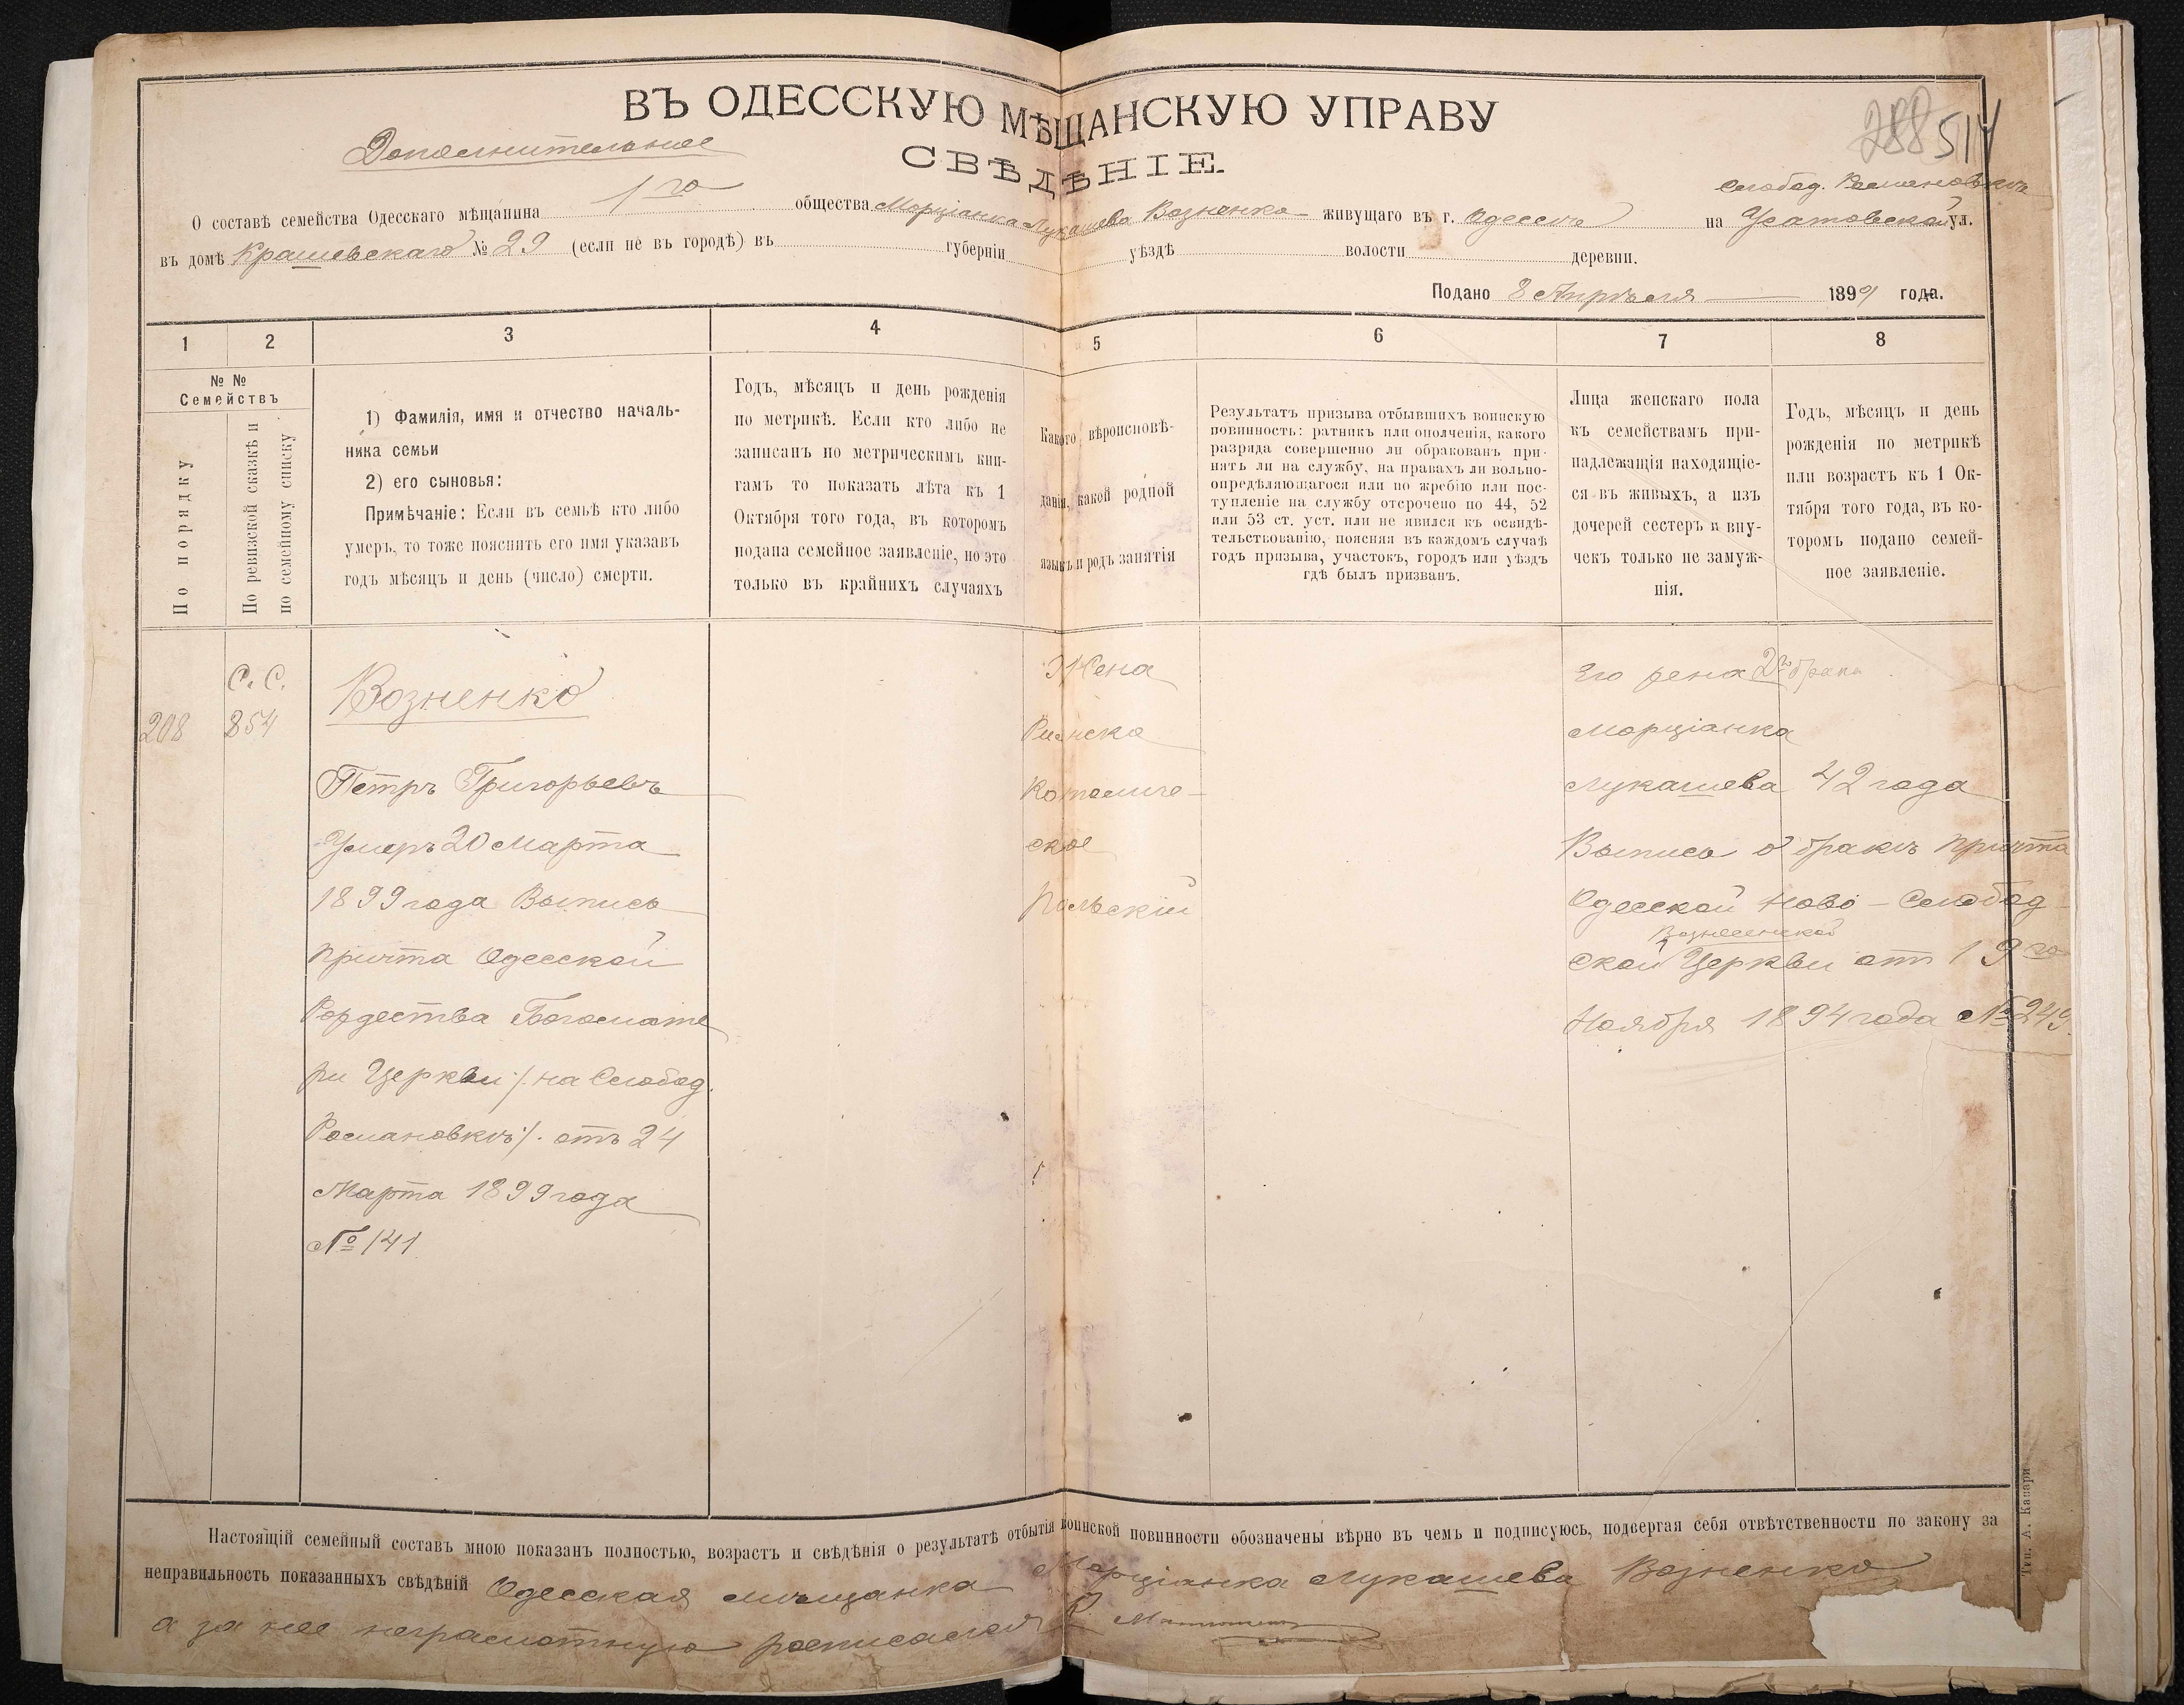 ВЪ ОДЕССКУЮ МѢЩАНСКУЮ УПРАВУ
288 517
Дополнительное
СВѢДѢНІЕ.
слобод. Романовкѣ
О составѣ семейства Одесскаго мѣщанина 1го общества Марціанна Лукашева Возненко живущаго въ г. Одессѣ на Усатовской ул.
въ домѣ Крашевскаго № 29 (если не въ городѣ) въ губерніи уѣздѣ волости деревни.
Подано 8 Апрѣля 1899 года.
1 2 3 4 5 6 7 8
№ №
Семействъ
По порядку
По ревизской сказкѣ и
по семейному списку
1) Фамилія, имя и отчество началь-
ника семьи
2) его сыновья:
Примѣчаніе: Если въ семьѣ кто либо
умеръ, то тоже пояснить его имя указавъ
годъ мѣсяцъ и день (число) смерти.
Годъ, мѣсяцъ и день рожденія
по метрикѣ. Если кто либо не
записанъ по метрическимъ кни-
гамъ то показать лѣта къ 1
Октября того года, въ которомъ
подана семейное заявленіе, но это
только въ крайнихъ случаяхъ
Какого вѣроисповѣ-
данія, какой родной
языкъ и родъ занятія
Результатъ призыва отбывшихъ воинскую
повинность: ратникъ или ополченія, какого
разряда совершенно ли обракованъ при-
нятъ ли на службу, на правахъ ли вольно-
опредѣляющагося или по жребію или пос-
тупленіе на службу отсрочено по 44, 52
или 53 ст. уст. или не явился къ освидѣ-
тельствованію, поясняя въ каждомъ случаѣ
годъ призыва, участокъ, городъ или уѣздъ
гдѣ былъ призванъ.
Лица женскаго пола
къ семействамъ при-
надлежащія находящіе-
ся въ живыхъ, а изъ
дочерей сестеръ и вну-
чекъ только не замуж-
нія.
Годъ, мѣсяцъ и день
рожденія по метрикѣ
или возрастъ къ 1 Ок-
тября того года, въ ко-
торомъ подано семей-
ное заявленіе.
208
С. С.
854
Возненко
Петръ Григорьевъ
Умеръ 20 Марта
1899 года Выпись
причта Одесской
Рождества Богомате
ри Церкви /. на Слобод.
Романовкѣ /. отъ 24
Марта 1899 года
№ 141
Жена
Римско
Католиче-
ское
Польскій
Его жена 2го брака
Марціанна
Лукашева 42 года
Выпись о бракѣ причта
Одесской Ново-Слобод-
Вознесенской
ской Церкви отъ 19го
Ноября 1894 года № 249.
Настоящій семейный составъ мною показанъ полностью, возрастъ и свѣдѣнія о результатѣ отбытія воинской повинности обозначены вѣрно въ чемъ и подписуюсь, подвергая себя отвѣтственности по закону за
неправильность показанныхъ свѣдѣній Одесская мѣщанка Марціанна Лукашева Возненко
а за нее неграмотную росписался
Тип. А. Капари